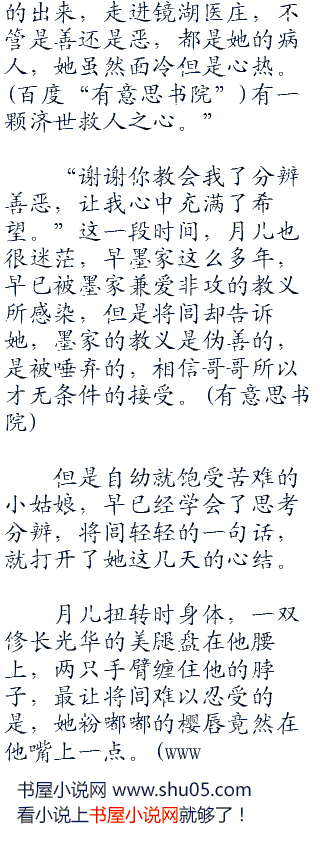 的出来，走进镜湖医庄，不
管是善还是恶，都是她的病
人，她虽然面冷但是心热。
(百度“有意思书院”)有一
颗济世救人之心。”
“谢谢你教会我了分辨
善恶，让我心中充满了希
望。”这一段时间，月儿也
很迷茫，早墨家这么多年，
早已被墨家兼爱非攻的教义
所感染，但是将闾却告诉
她，墨家的教义是伪善的，
是被唾弃的，相信哥哥所以
才无条件的接受。(有意思书
院)
但是自幼就饱受苦难的
小姑娘，早已经学会了思考
分辨，将闾轻轻的一句话，
就打开了她这几天的心结。
月儿扭转时身体，一双
修长光华的美腿盘在他腰
上，两只手臂缠住他的脖
子，最让将闾难以忍受的
是，她粉嘟嘟的樱唇竟然在
他嘴上一点。(www
书屋小说网 www.shu05.com
看小说上书屋小说网就够了！